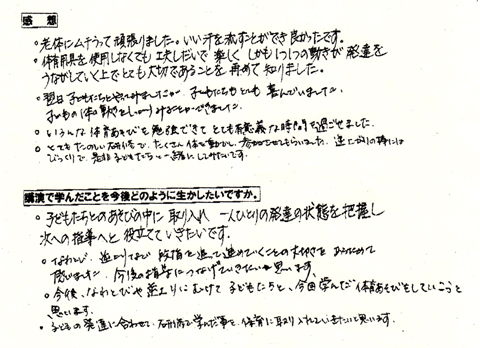 感想
○ 老体にムチうって頑張りました。いい汗を流すことができ良かったです。
○ 体育用具を使用しなくても工夫しだいで楽しくしかも1つ1つの動きが発達を
うながしていく上でとても大切であることを再めて知りました。
○ 翌日子どもたちとやってみましたが 子どもたちもとても喜んでいました。
子どもの体の動きをしっかりみることができました。
○ いろんな体育あそびを勉強できてとても有意義な時間を過ごせました。
○ とてもたのしい研修で、たくさん体を動かし、参加させてもらいました。逆上がりの時には
びっくりで、是非子どもたちと一緒にしてみたいです。
講演で学んだことを今後どのように生かしたいですか。
○ 子どもたちとのあそびの中に取り入れ 一人ひとりの発達の状態を把握し
次への指導へと役立てていきたいです。
○ なわとび、逆上りなど 段階を追って進めていくことの大切さをあらためて
感じました。今後の指導につなげていきたいと思います。
○ 今後、なわとびや逆上りにむけて子どもたちと、今回学んだ体育あそびをしていこうと
思います。
○ 子どもの発達に合わせて、研修で学んだ事を、保育に取り入れていきたいと思います。